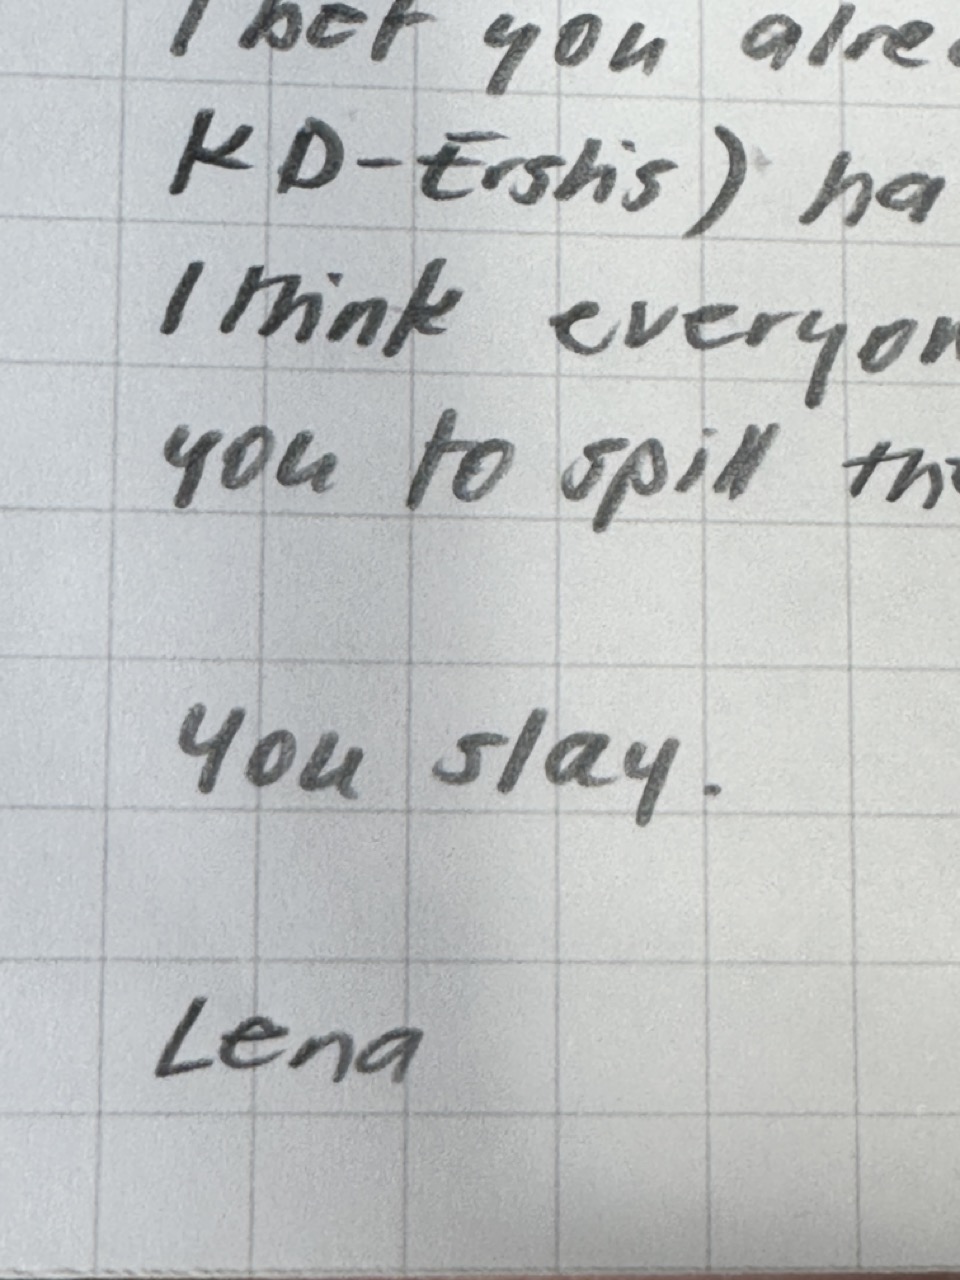 I bet you alrea
KD-Ershis) ha
I think everyon
you to spill the
you slay.
Lena